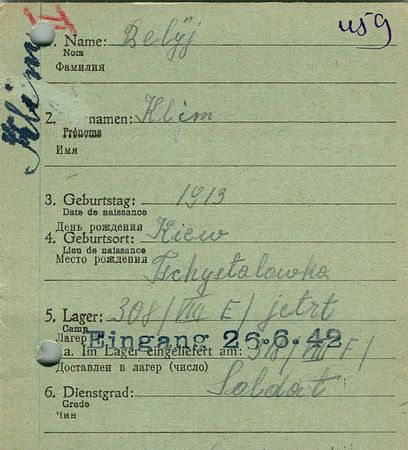 Klim V
usg
1. Name: Belÿj
Nom
Фамилия
2. namen: Klim
Prénoms
Имя
3. Geburtstag: 1913
Date de naissance
День рождения
4. Geburtsort: Kiew
Lieu de naissance
Место рождения
Tschystalowka
5. Lager: 308/VIII E/ jetzt
Camp
Лагерь
Eingang 26.6.42
a. Im Lager eingeliefert am: 318/VIII F/
Доставлен в лагер (число)
6. Dienstgrad: Soldat
Grade
Чин